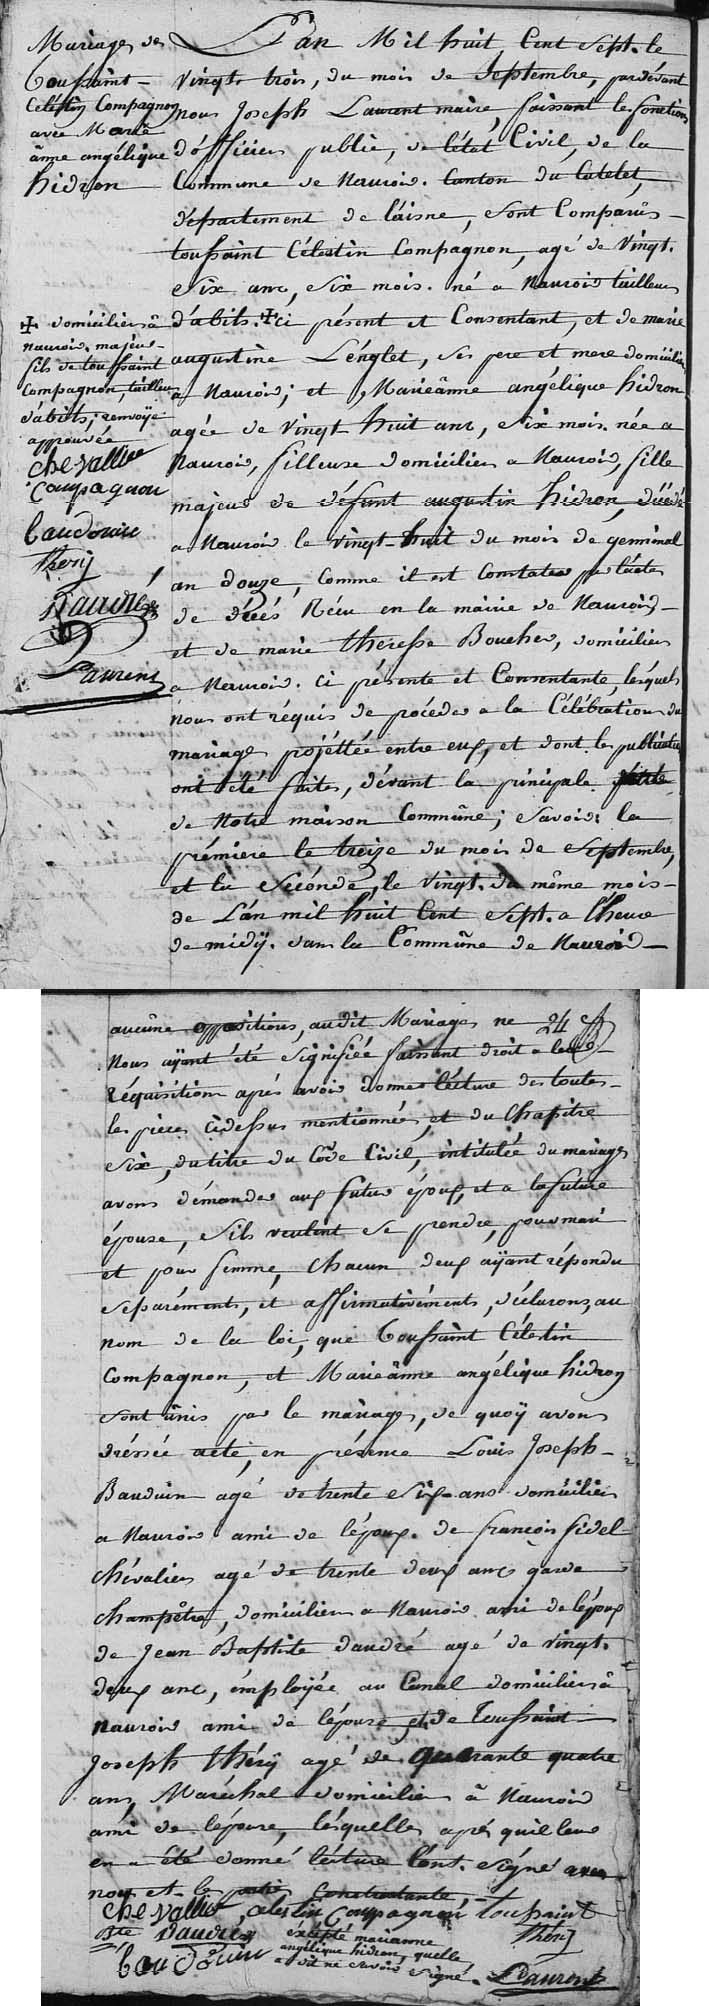 Mariage de
Toussaint
Célestin Compagnon
avec Marie
ânne angélique
hidron
L'an Mil huit Cent Sept. le
vingt trois, du mois de Septembre, pardévant
nous Joseph Laurent maire, faissant le fonctions
d'officier publie, de l'état Civil, de la
Commune de Nauroir. Canton du Catelet,
département de l'aisne, Sont Comparûs
toussaint Célestin Compagnon, agé de Vingt.
Six anc, Six mois. né a Nauroir tailleur
d'abits. ✠ Ci présent et Consentant, et de marie
augustine Lénglet, Ses pere et mere domicilier
a Nauroir; et Marieânne angélique hidron
agée de Vingt huit anc, Six mois. née a
Nauroir, filleuse domicilier a Nauroir, fille
majeur de défunt augustin hidron, décédé
a Nauroir le vingt-huit du mois de germinal
an douze, Comme il est Constater par l'actes
de décés Récu en la mairie de Nauroir
et de marie theresse Boucher, domicilier
a Nauroir. Ci présente et Consentante, lesquels
nous ont réquis de procéder a la Célébration du
mariage projéttée entre eux, et dont les publication
ont été faites, dévant la principale
de Notre maison Commûne; Savoir; la
prémiere le treize du mois de Septembre,
et la Séconde, le vingt. du même mois
de L'an mil huit Cent Sept. a l'heure
de midÿ. dans la Commûne de Nauroir
✠ domicilier â
nauroir. majeur
fils de toussaint
Compagnon, tailleur
d'abits; renvoÿe
approuvée
chevallier
Compagnon
baudouin
théry
Daudré
Laurent
24
aucûne oppositions, audit Mariage ne
Nous aÿant été Signifiée faissant droit a leur
réquisition aprés avoir donner lécture des toutes
les pieces cidessus mentionnées, et du Chapitre
Six, du titre du Côde Civil, intitulée du mariage
avons démander aux futur époux et a la future
épouse, s'ils veulent Se prendre, pour mari
et pour femme, Chacun deux aÿant répondu
Séparéments, et affirmativéments, déclarons, au
nom de la loi, que Toussaint Célestin
Compagnon, et Marieânne angélique hidron
Sont ûnis par le mariage, de quoÿ avons
dréssée acte, en présence Louis Joseph
Bauduin agé de trente Six ans domicilier
a Nauroir ami de l'époux. de francois fidel
Chévalier agé de trente deux anc garde
Champêtre, domicilier a Nauroir ami de l'époux
de Jean Baptiste daudré agé de vingt.
deux anc, émployée au Canal domicilier â
Nauroir ami de l'épouse et de Toussaint
Joseph théry agé de Quarante quatre
ans, Maréchal domicilier â Nauroir
ami de l'epouse, lésquelles aprés quil leur
en a été donné lécture l'ont. Signé avec
nous et les partie Contractante,
chevallier Celestin Compagnon toussaint
Bte Daudré théry
baudouin
éxcépté marianne
angélique hidron, quelle
a dit ne Savoir Signé.
Laurent